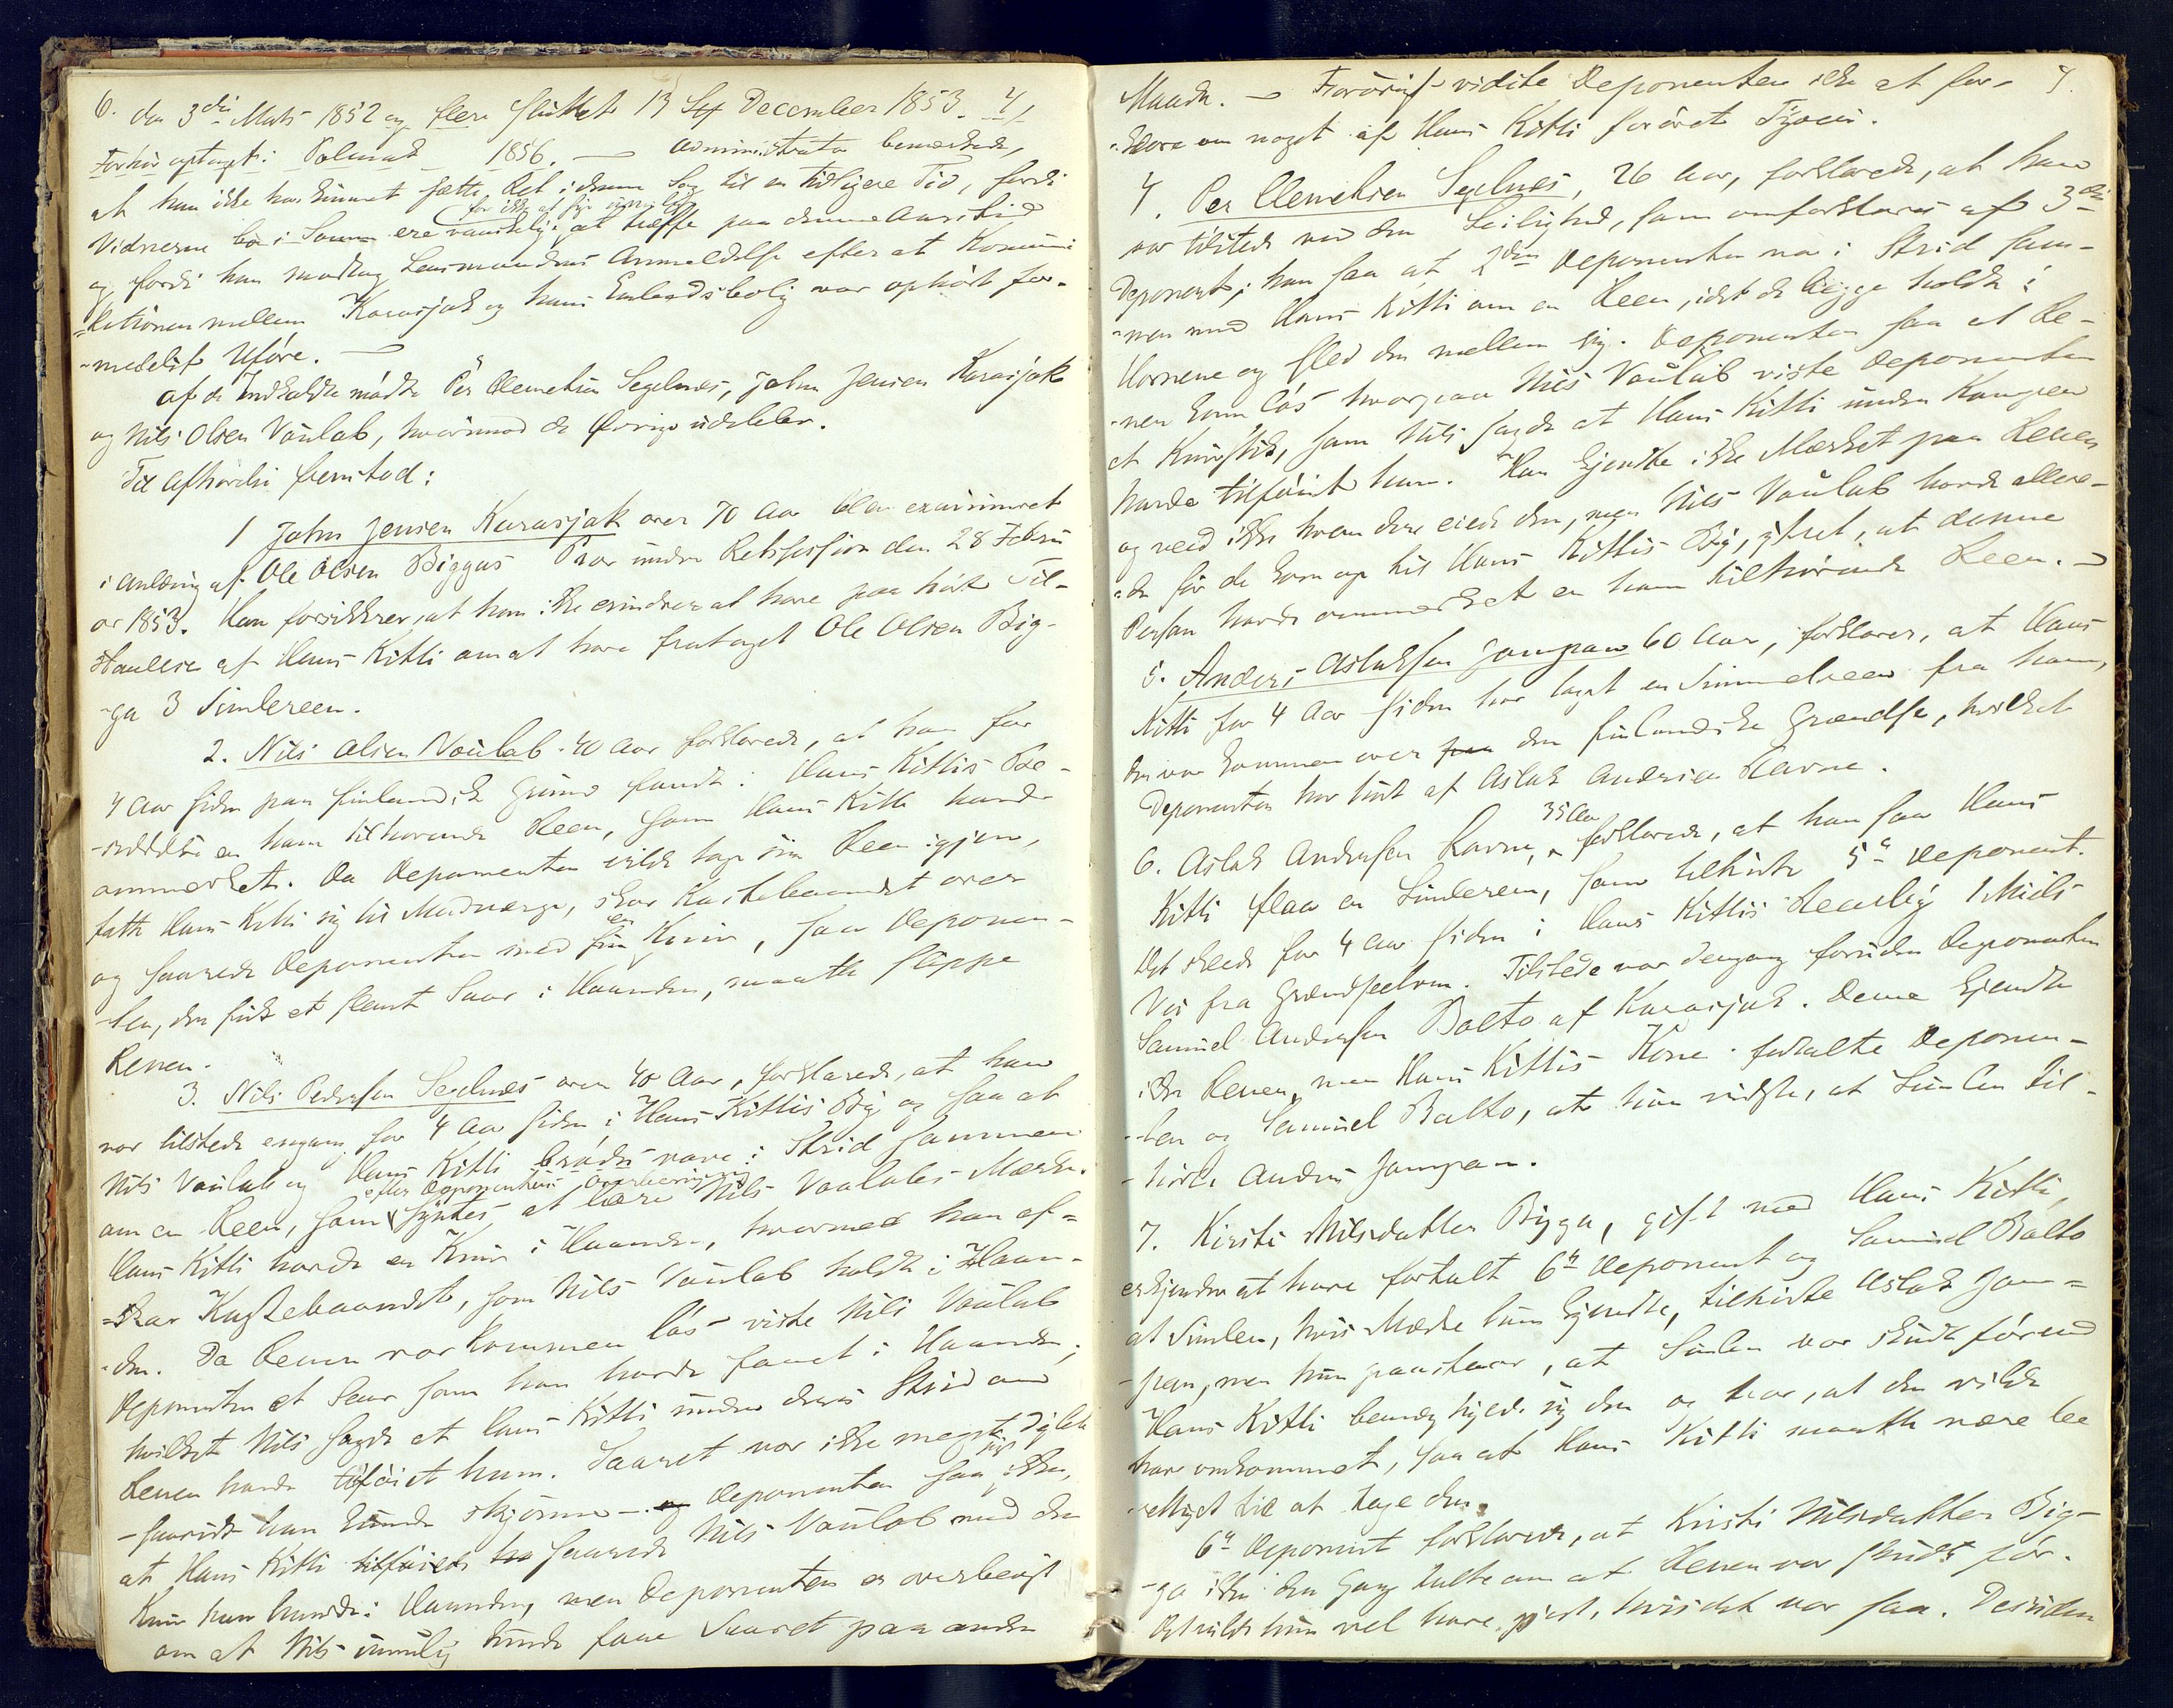 6.
den 3die Marts 1852 og flere sluttet 13 December 1853. 4/
Forhør optaget i Polmak 1856. — Administrator bemærkede,
at han ikke har kunnet sætte Ret i denne Sag til en tidligere Tid, fordi
Vidnerne ere vanskelige (for ikke at sige umulige) at træffe paa denne Aarstid
og fordi han modtog Lensmandens Anmeldelse efter at Kommuni-
-kationen mellem Karasjok og hans Embedsbolig var ophørt for-
-medelst Uføre. —
af de Indkaldte mødte Per Clemetsen Segelnæs, John Jensen Karasjok
og Nils Olsen Vaulab, hvorimod de Øvrige udeblev.
Til Afhøring fremstod:
1 John Jensen Karasjok over 70 Aar blev examineret
i Anledning af Ole Olsen Biggas Prov under Retssession den 28 Febru
ar 1853. Han forsikkrer, at han ikke erindrer at have paahørt Til-
staaelse af Hans Kitti om at have frataget Ole Olsen Big-
-ga 3 Simlereen.
2. Nils Olsen Vaulab 40 Aar forklarede, at han for
4 Aar siden paa finlandsk Grund fandt i Hans Kittis Be-
-siddelse en ham tilhørende Reen, som Hans Kitti havde
ommærket. Da Deponenten vilde tage sin Reen igjen,
satte Hans Kitti sig til Modværge, skar Kastebaandet over
og saarede Deponenten med en Kniv, saa Deponen-
-ten, der fik et slemt Saar i Haanden, maatte slippe
Renen.
3. Nils Pedersen Segelnæs over 40 Aar, forklarede, at han
var tilstede engang for 4 Aar siden i Hans Kittis By og saa at
Nils Vaulab og Hans Kitti vare i Strid sammen
om en Reen, som efter Deponentens Overbeviisning syntes at bære Nils Vaulabs Mærke.
Hans Kitti havde en Kniv i Haanden, hvormed han af-
-skar Kastebaandet, som Nils Vaulab holdt i Haan-
-den. Da Renen var kommen løs viste Nils Vaulab
Deponenten et Saar som han havde faaet i Haanden;
hvilket Nils sagde at Hans Kitti under deres Strid om
Renen havde tilføiet ham. Saaret var ikke meget dybt
-saavidt han kunde skjønne — Deponenten saa just ikke,
at Hans Kitti saarede Nils Vaulab med den
Kniv han havde i Haanden, men Deponenten er overbevist
om at Nils umulig kunde faae Saaret paa anden
7.
Maade. — Forøvrigt vidste Deponenten ikke at for-
-klare om noget af Hans Kitti forøvet Tyveri.
4. Per Clemetsen Segelnæs, 26 Aar, forklarede, at han
var tilstede ved den Leilighed, som omforklares af 3die
Deponent; han saa at 2den Deponenten var i Strid sam-
-men med Hans Kitti om en Reen, idet de begge holdt i
Hornene og sled den mellem sig. Deponenten saa at Re-
-nen kom løs hvorpaa Nils Vaulab viste Deponenten
et Knivstik, som Nils sagde at Hans Kitti under Kampen
havde tilføiet ham. Han kjendte ikke Mærket paa Renen
og veed ikke hvem der eiede den, men Nils Vaulab havde allere-
-de før de kom op til Hans Kittis By, ytret, at denne
Person havde ommærket en ham tilhørende Reen. —
5. Anders Aslaksen Jompan 60 Aar, forklarer, at Hans
Kitti for 4 Aar siden har taget en Simmelreen fra ham,
der var kommen over den finlandske Grændse, hvilket
Deponenten har hørt af Aslak Andersen Ravne.
6. Aslak Andersen Ravne, 35 Aar forklarede, at han saa Hans
Kitti flaa en Simlereen, som tilhørte 5te Deponent.
Det skede for 4 Aar siden i Hans Kittis Reenby 1 Miils
Vei fra Grændseelven. Tilstede var dengang foruden Deponenten
Samuel Andersen Balto af Karasjok. Denne kjendte
ikke Renen, men Hans Kittis Kone fortalte Deponen-
-ten og Samuel Balto, at hun vidste, at Simlen til-
-hørte Anders Jompan.
7. Kirsti Nilsdatter Bigga, gift med Hans Kitti,
erkjender at have fortalt 6te Deponent og Samuel Balto
at Simlen, hvis Mærke hun kjendte, tilhørte Aslak Jom-
-pan, men hun paastaar, at Simlen var skudt førend
Hans Kitti bemægtigede sig den og var, at den vilde
have omkommet, saa at Hans Kitti maatte være be
-rettiget til at tage den.
6te Deponent forklarede, at Kirsti Nilsdatter Big-
-ga ikke den Gang talte om at Renen var skudt før.
Det vilde hun vel have gjort, hvis det var saa. Desuden